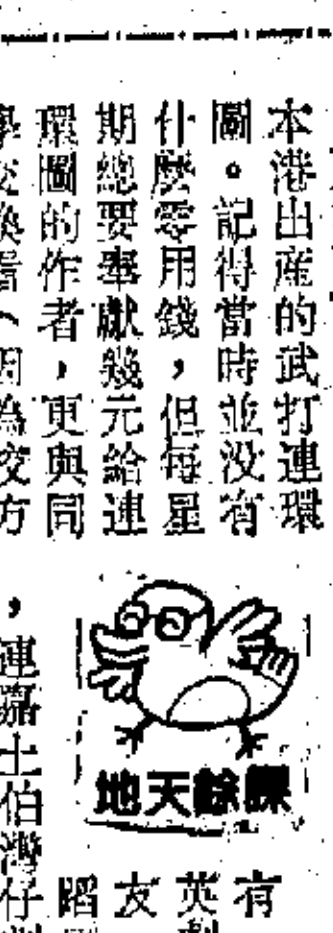 本港出産的武打連環
圖。記得當時並没有
什麼零用錢，但每星
期總要奉獻幾元給連
環圖的作者，更與同
學交換看（因為校方
課餘天地
有
英
友
蹈
，連嘉士伯灣仔